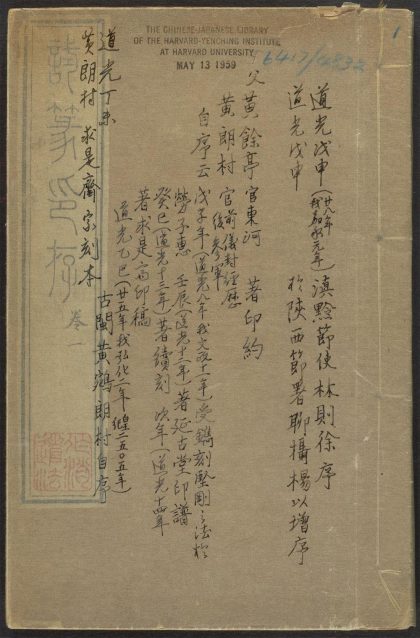 THE CHINESE-JAPANESE LIBRARY
OF THE HARVARD-YENCHING INSTITUTE
AT HARVARD UNIVERSITY
MAY 13 1959
道光戊申(廿八年 我嘉永元年)滇黔節使林則徐序
道光戊申 於陝西節署聊攝楊以增序
父 黃餘亭 官東河 著印約
黃朗村 官前儀封經歷 後參軍
自序云 戊子年(道光八年我文政十一年)受鐫刻堅剛之法於
勞子惠 壬辰(道光十二年)著延古堂印譜
癸巳(道光十三年)著續刻 次年(道光十四年
著求是齋印稿
道光乙巳(廿五年我弘化二年 二五〇五年)
古閩黃鶴朗村自序
道光丁未
黃朗村 求是齋家刻本
篆印存 卷一